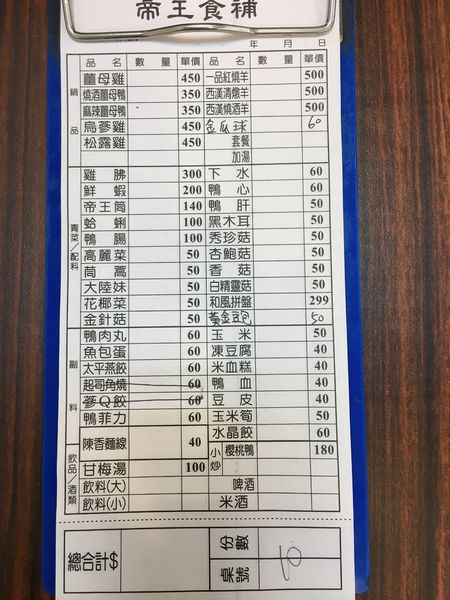 帝王食補
年 月 日
品名 數量 單價 品名 數量 單價
鍋品
薑母雞 450 一品紅燒羊 500
燒酒薑母鴨 350 西漢清燉羊 500
麻辣薑母鴨 350 西漢燒酒羊 500
烏蔘雞 450 金瓜球 60
松露雞 450 套餐
加湯
青菜/配料
雞胇 300 下水 60
鮮蝦 200 鴨心 60
帝王筒 140 鴨肝 50
蛤蜊 100 黑木耳 50
鴨腸 100 秀珍菇 50
高麗菜 50 杏鮑菇 50
茼蒿 50 香菇 50
大陸妹 50 白精靈菇 50
花椰菜 50 和風拼盤 299
金針菇 50 黃金豆包 50
副料
鴨肉丸 60 玉米 50
魚包蛋 60 凍豆腐 40
太平燕餃 60 米血糕 40
起司角燒 60 鴨血 40
蔘Q餃 60 豆皮 40
鴨菲力 60 玉米筍 50
水晶餃 60
陳香麵線 40 小炒 櫻桃鴨 180
飲品/酒類
甘梅湯 100
飲料(大) 啤酒
飲料(小) 米酒
總合計$ 份數
桌號